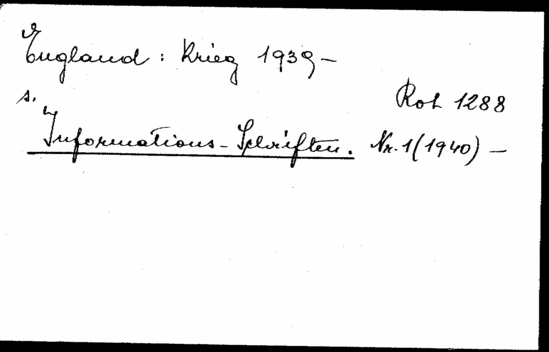 England: Krieg 1939-
s. Rot 1288
Informations-Schriften. Nr. 1 (1940) -